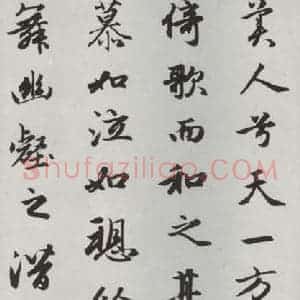 美人兮天一方
倚歌而和之其
慕如泣如愬
舞幽壑之潛
shufaziliao.COM